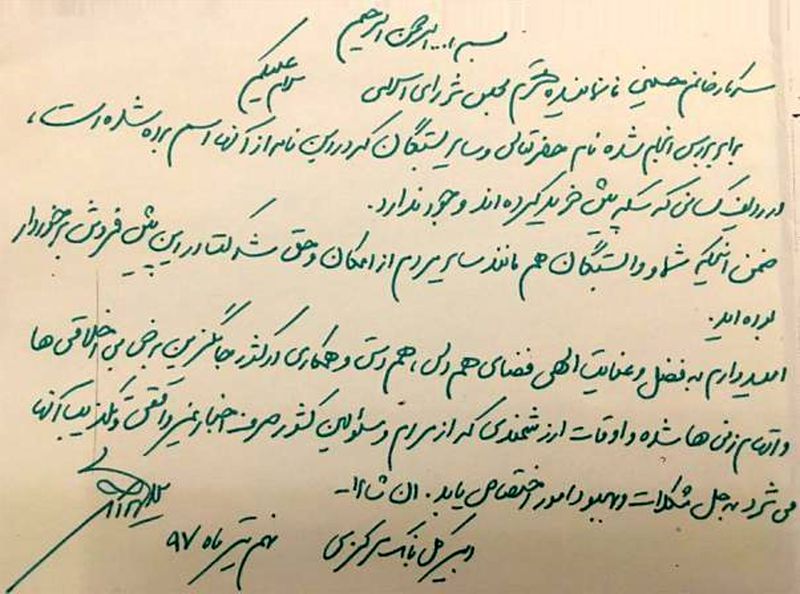 بسم ا... الرحمن الرحیم
سرکار خانم حسینی نماینده محترم مجلس شورای اسلامی
سلام علیکم
برابر بررسی انجام شده نام حضرتعالی و سایر بستگان که در این نامه از آنها اسم برده شده است،
در ردیف کسانی که سکه پیش خرید کرده اند وجود ندارد.
ضمن آنکه شما و وابستگان هم مانند سایر مردم از امکان و حق مشارکت در این پیش فروش برخوردار
بوده اید.
امیدوارم به فضل و عنایت الهی فضای هم دلی، هم دستی و همکاری در کشور جایگزین برخی بی اخلاقی ها
و اتهام زنی ها شده و اوقات ارزشمندی که از مردم و مسئولین کشور صرف اخبار غیر واقعی و تکذیب آنها
می شود به حل مشکلات و بهبود امور اختصاص یابد. ان شاءا...
دبیر کل بانک مرکزی
نهم تیر ماه ۹۷